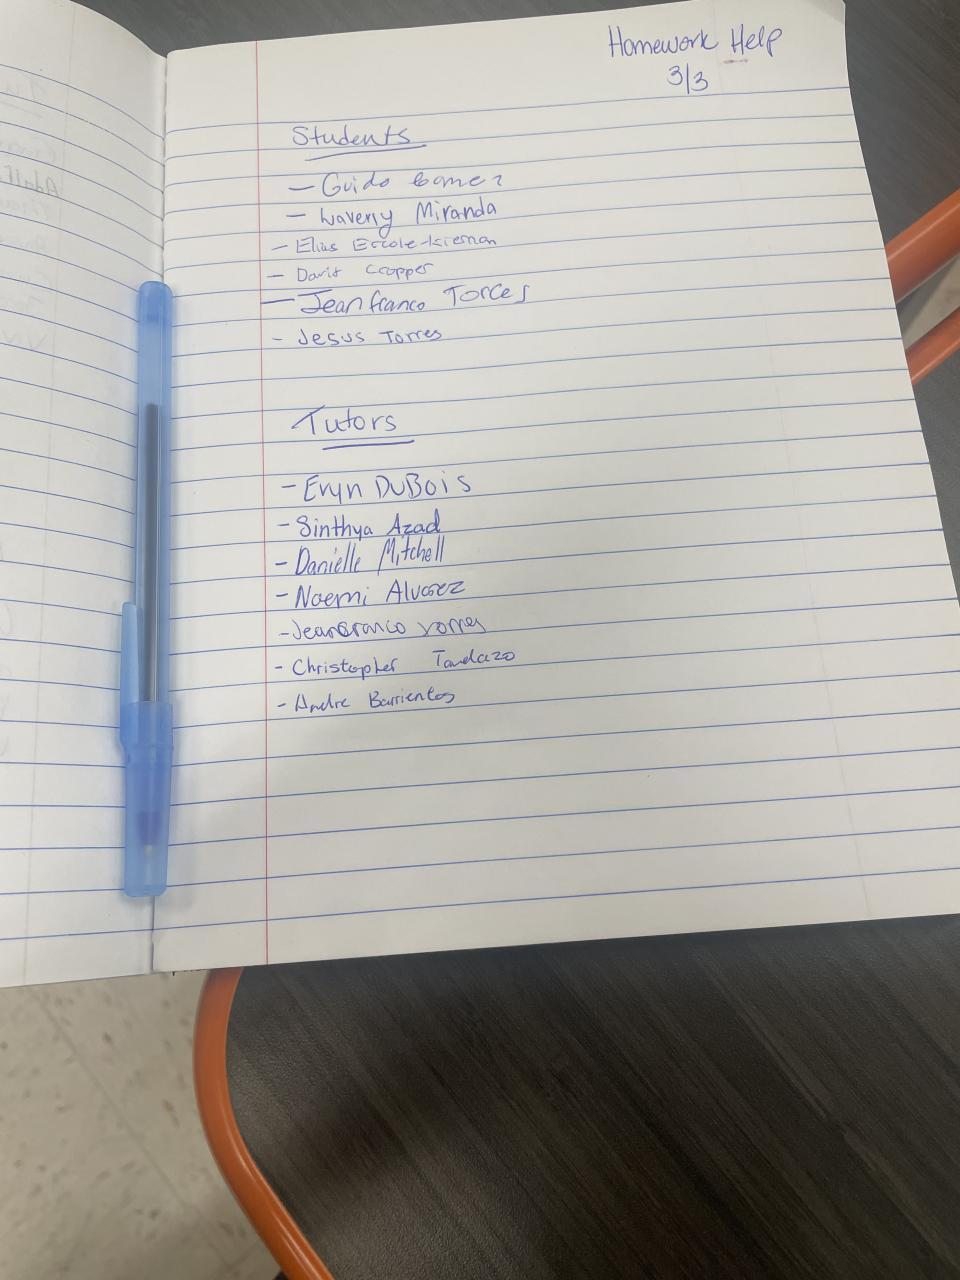 Homework Help
3/3
Students
- Guido Gomez
- Waverly Miranda
- Elias Ercole-Kiernan
- David Cropper
- Jeanfranco Torres
- Jesus Torres
Tutors
- Eryn DuBois
- Sinthya Azad
- Danielle Mitchell
- Noemi Alvarez
- Jeanfranco Torres
- Christopher Tandazo
- Andre Barrientos